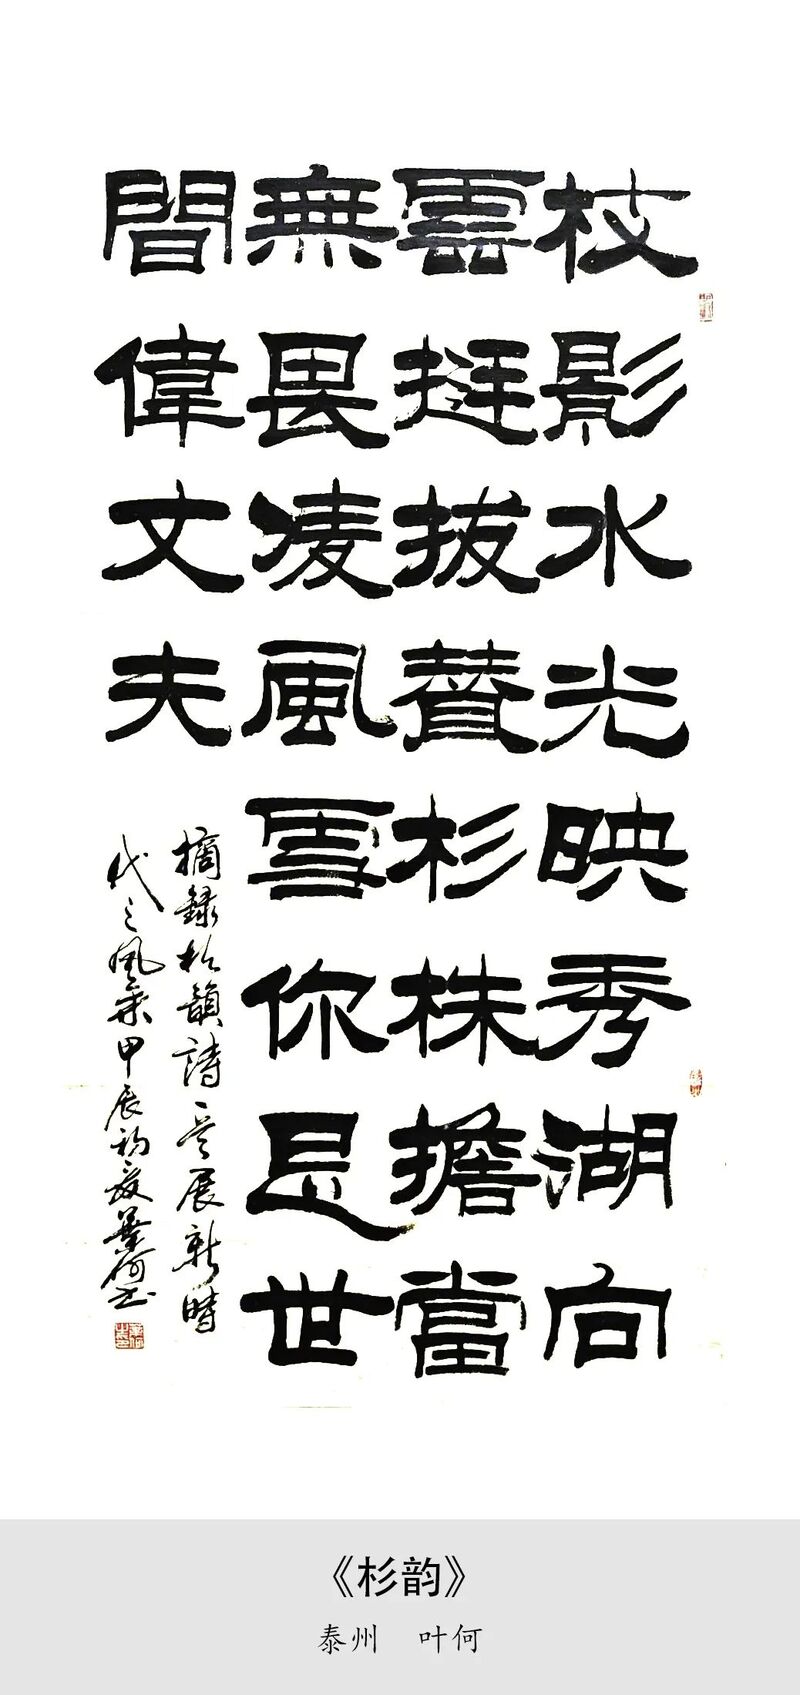 枝影水光映秀湖向
雲挺拔贊杉株擔當
無畏凌風雪你是世
間偉丈夫
摘録杉韻詩一首展新時
代之風采甲辰初夏葉何书
《杉韵》
泰州 叶何